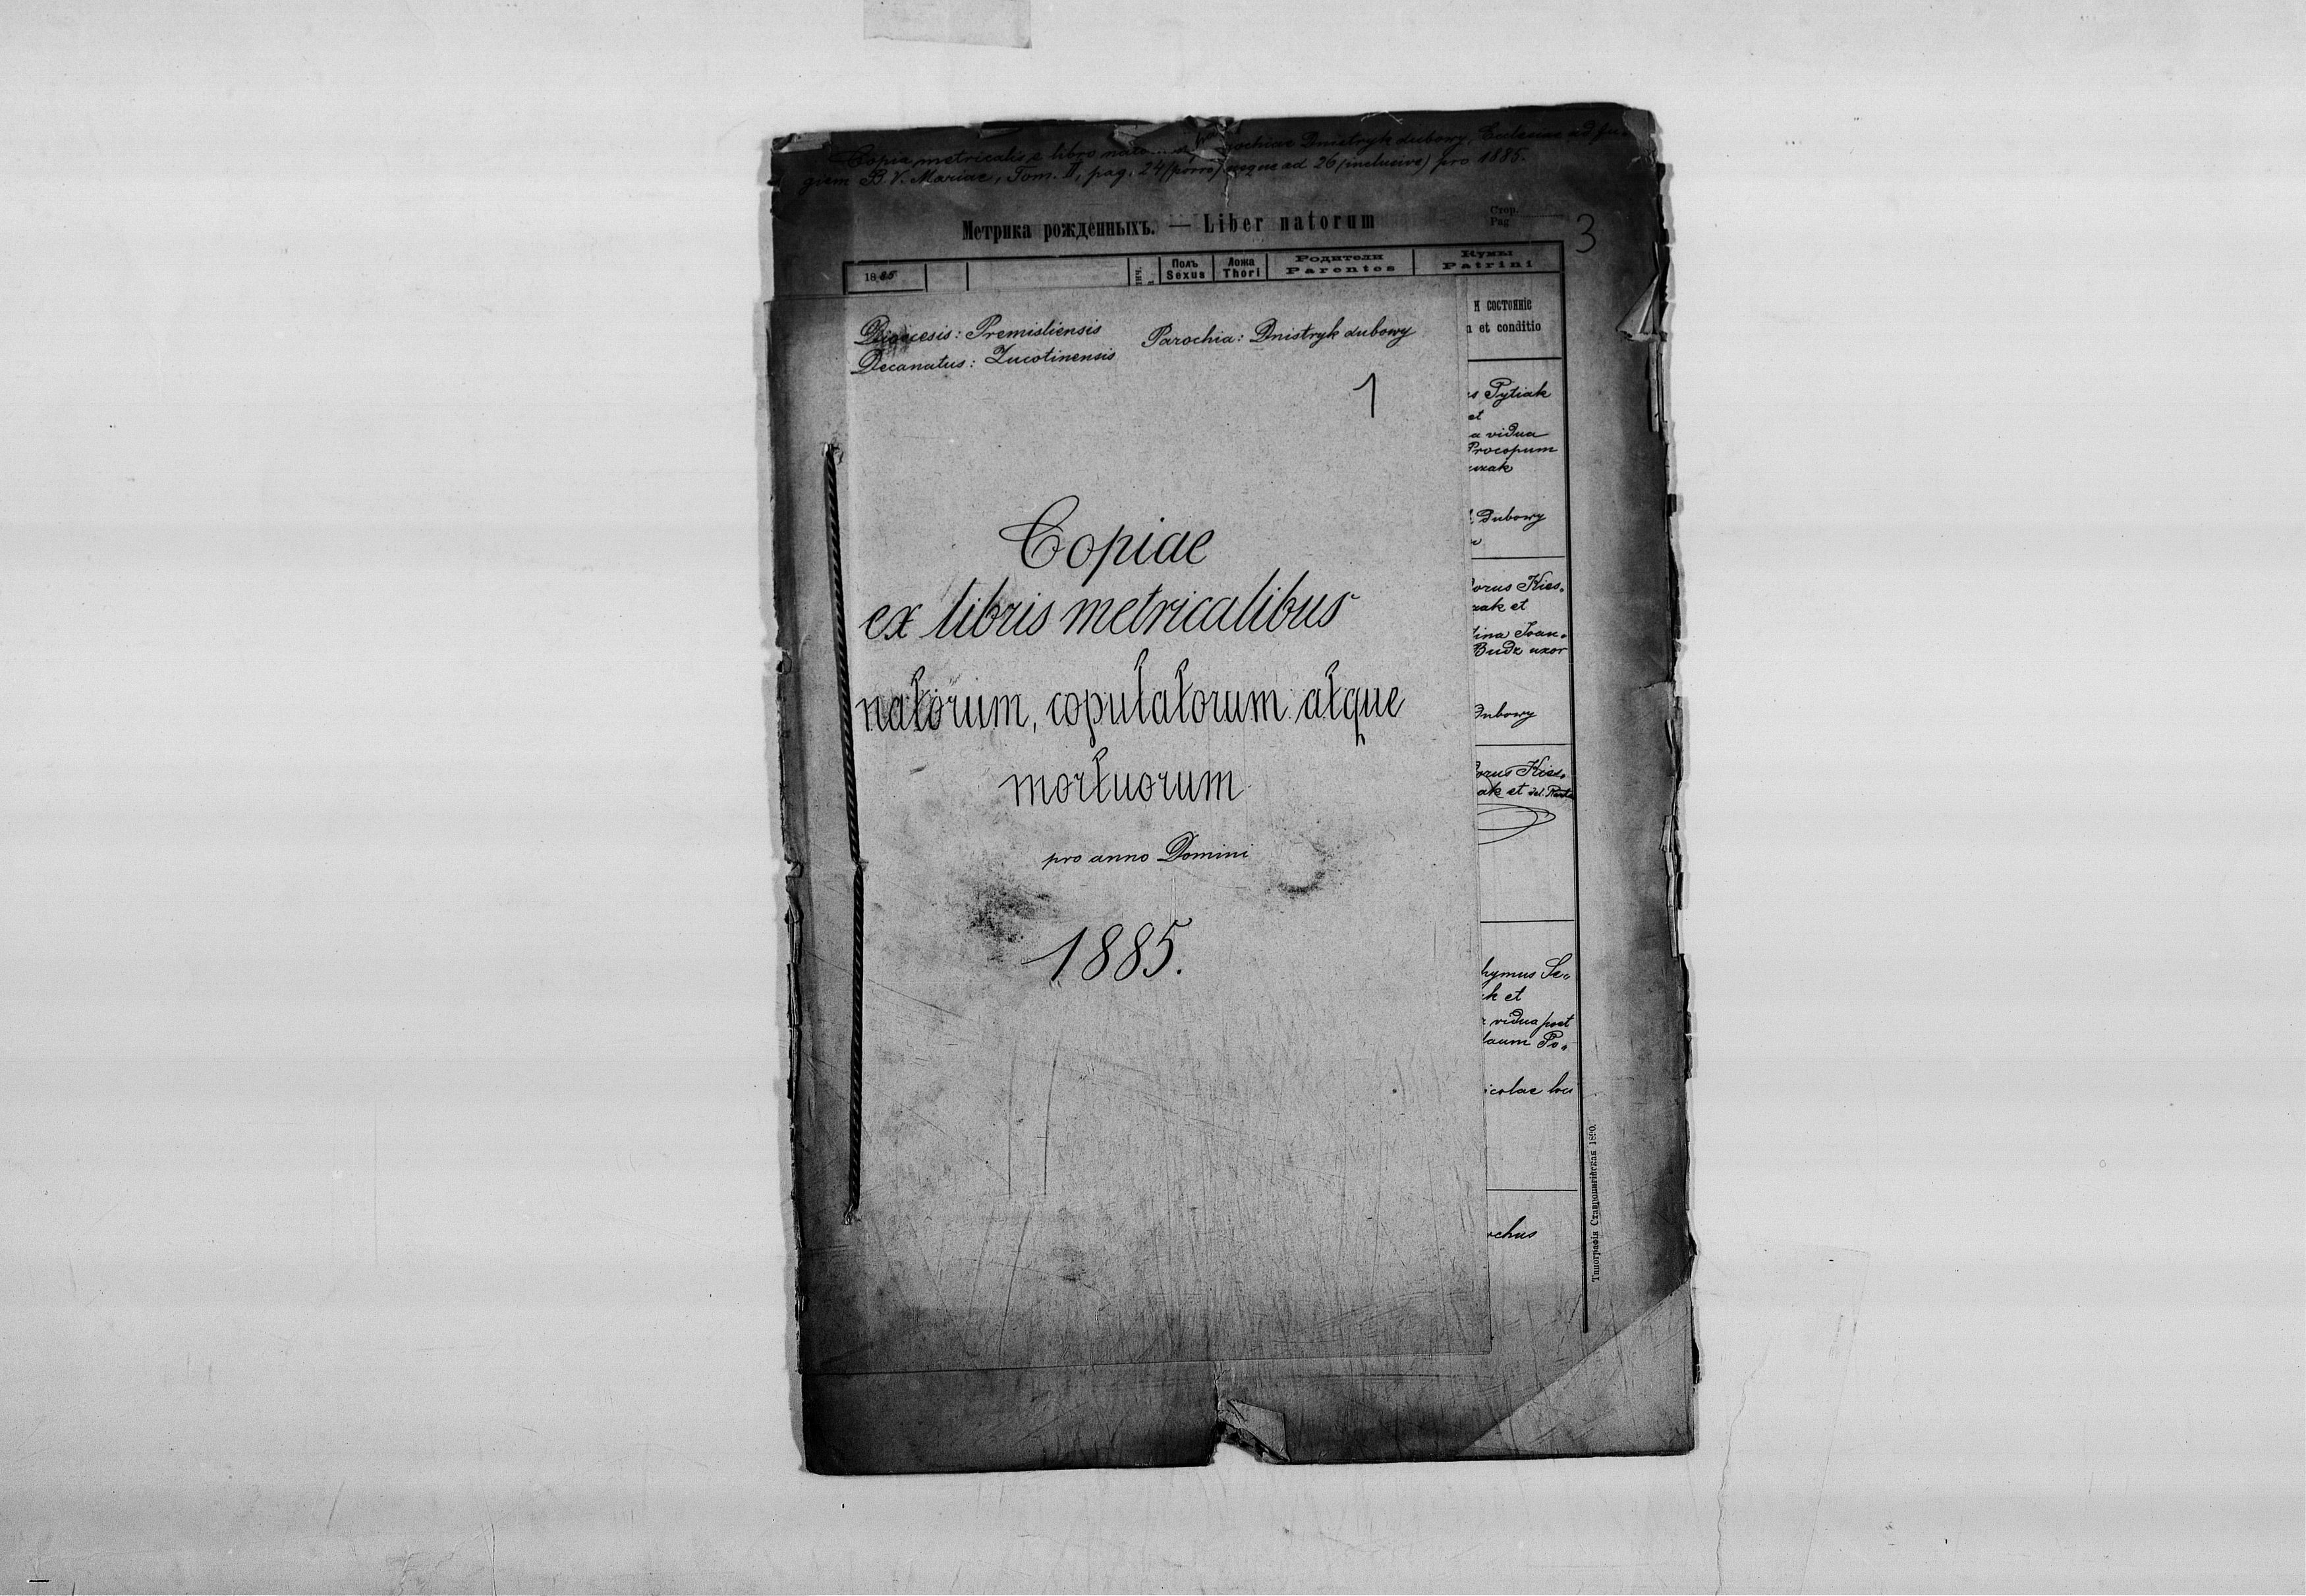 Copia metricalis e libro parochiae Dnistryk dubowy, Ecclesiae ad fu-
giem B. V. Mariae, Tom. II, pag. 24 (porro) usque ad 26 (inclusive) pro 1885.
Метрика рожденныхъ. — Liber natorum
Стор.
Pag
3
1885
Полъ
Sexus
Ложа
Thori
Родители
Parentes
Кумы
Patrini
и состоянiе
et conditio
Dioecesis: Premisliensis
Parochia: Dnistryk dubowy
Decanatus: Zucotinensis
1
Copiae
ex libris metricalibus
natorum, copulatorum atque
mortuorum
pro anno Domini
1885.
Pytiak
et
a vidua
Procopum
Dubowy
orus Kies-
zak et
tina Ioan-
Budz uxor
Dubowy
orus Kies-
ak et
hymus Se-
k et
vidua post
laum Po-
icolae loci
ochus
Типографiя Ставропигiйская 1890.